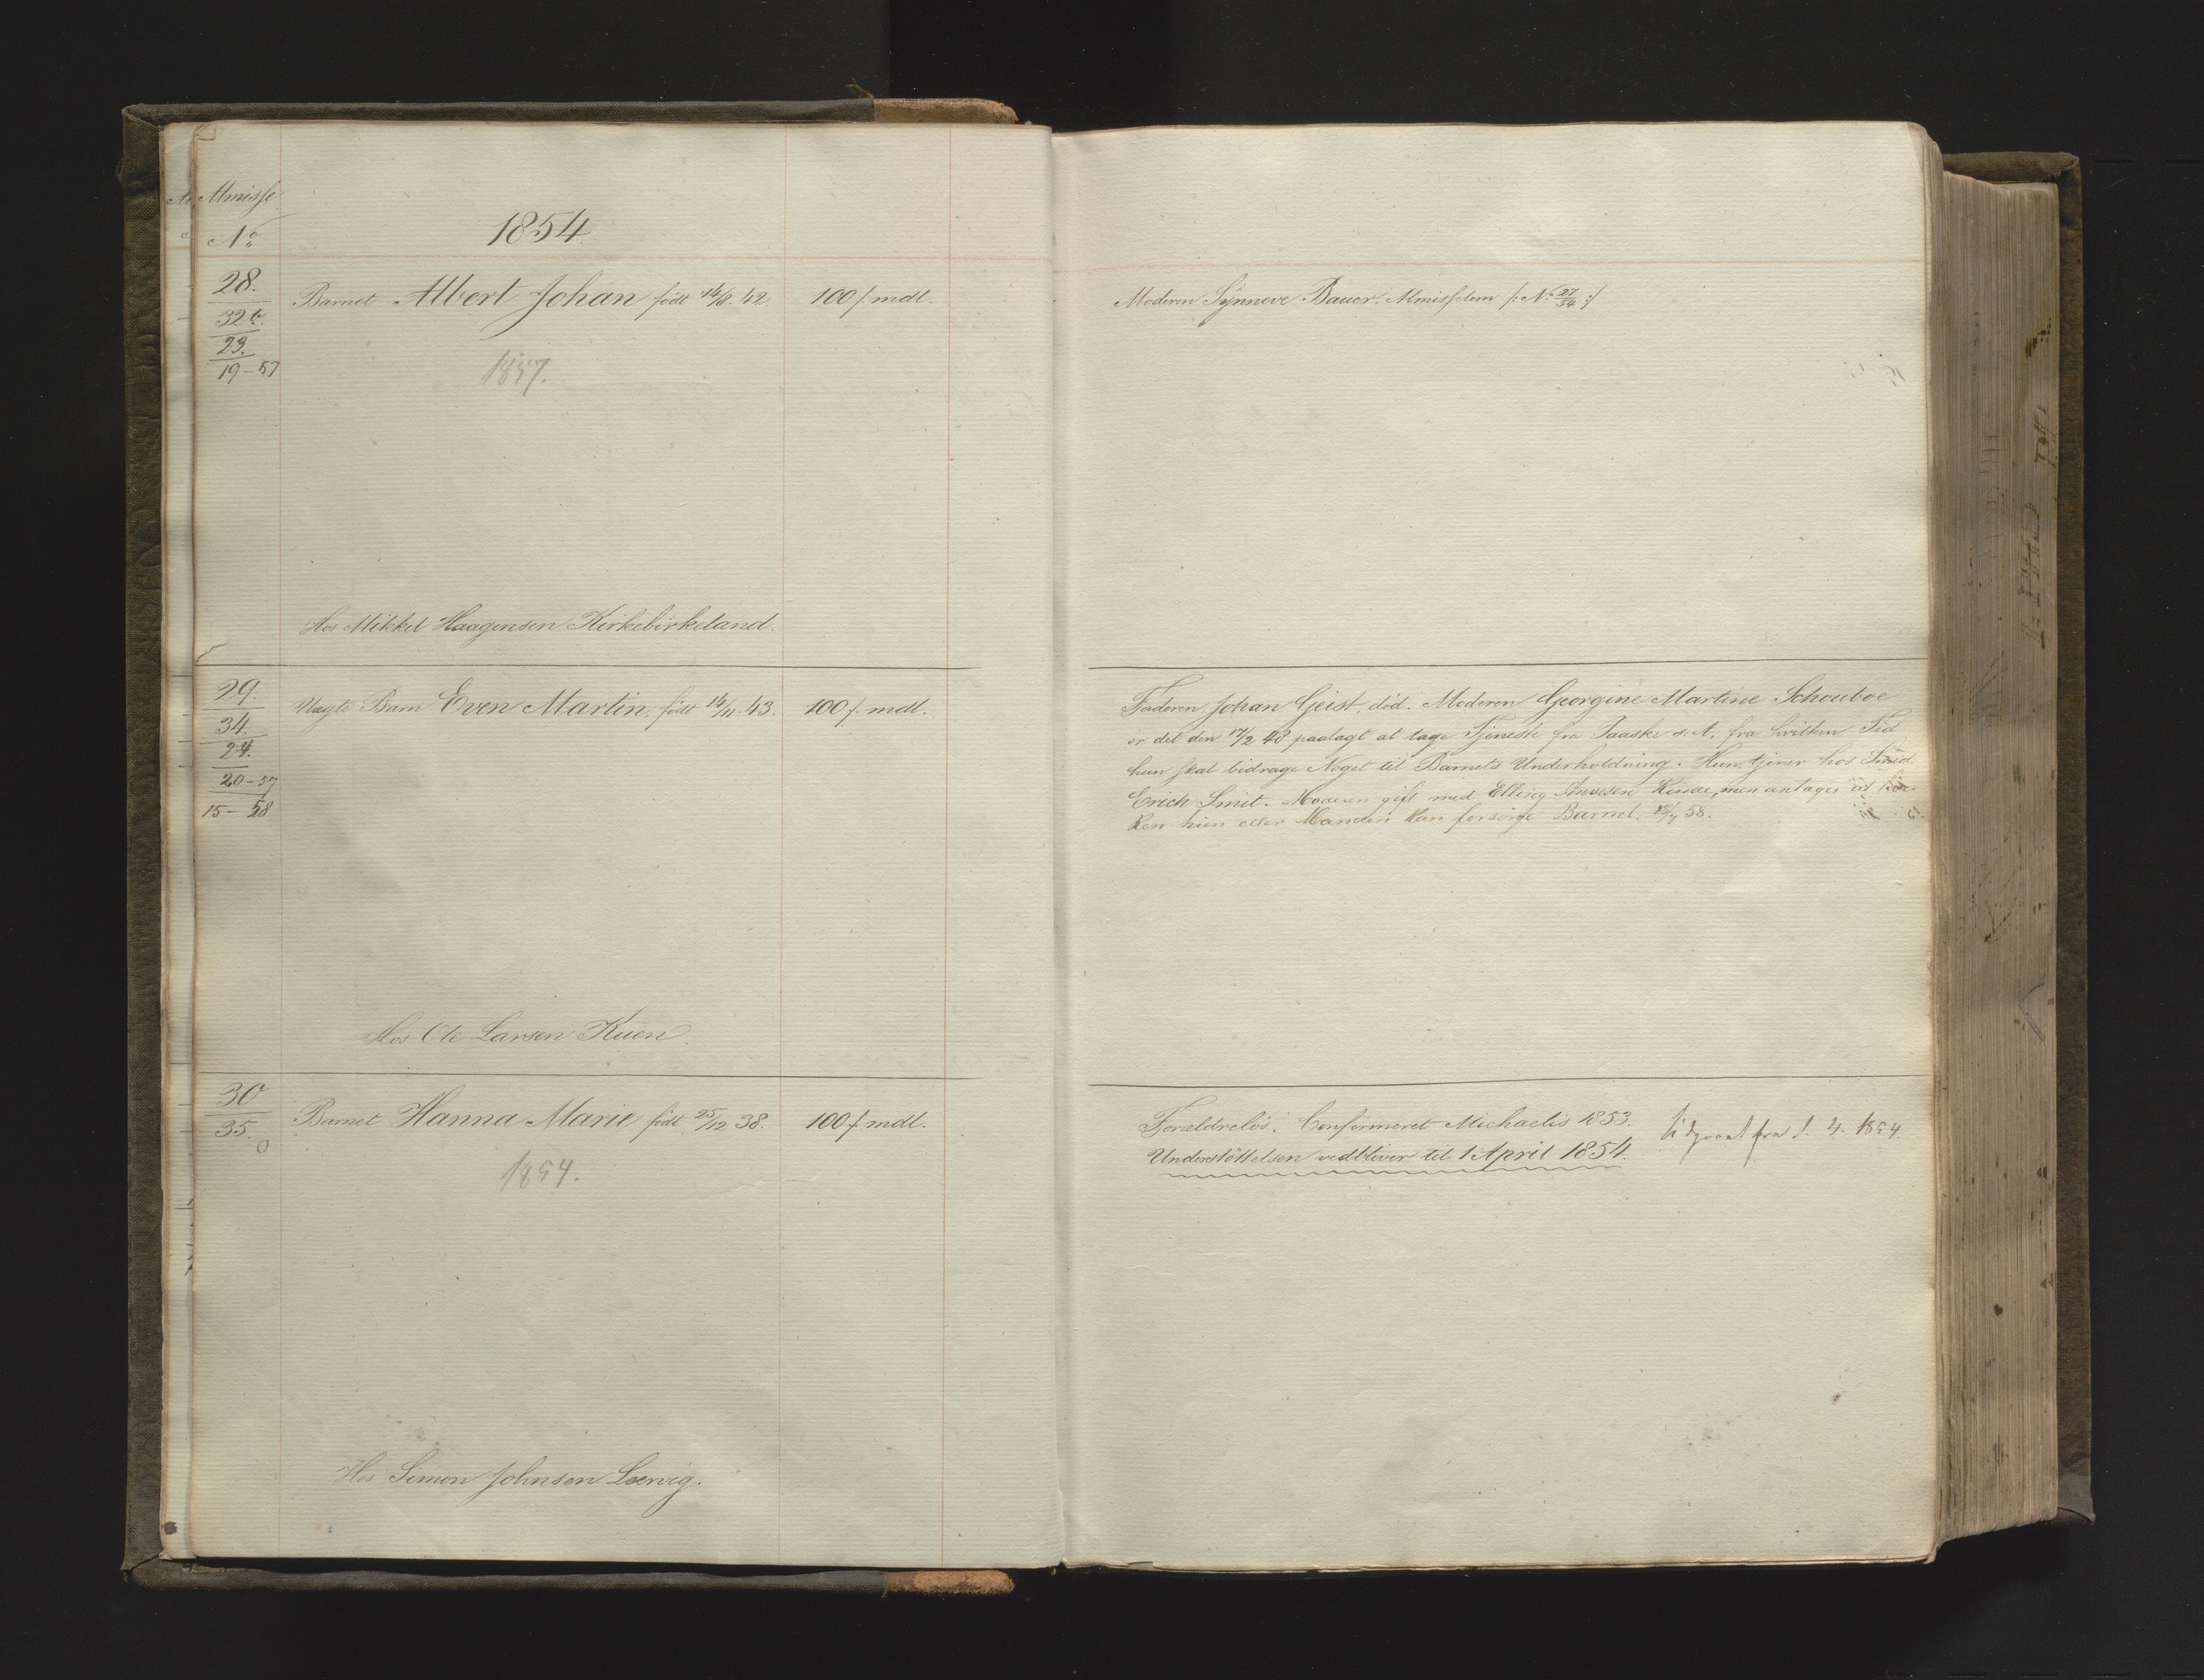 Almisse
No
1854.
28.
32 b.
23.
19-57
Barnet Albert Johan født 14/8. 42.
100 / mdl.
1857.
Hos Mikkel Haagensen Kirkebirkeland.
29.
34.
24.
20-57
15-58
Uægte Barn Even Martin, født 14/11. 43.
100 /. mdl.
Hos Ole Larsen Kuen.
30
35.
0
Barnet Hanna Marie født 25/12 38.
100 /. mdl.
1854.
Hos Simon Johnsen Lervig.
Moderen Synneve Bauer, Almisselem /: No 27/54 :/
Faderen Johan Geist, død. Moderen Georgine Martine Schouboe
er det den 17/2 48 paalagt at tage Tjeneste fra Paaske s. A. fra hvilken Tid
hun skal bidrage Noget til Barnets Underholdning. Hun tjener hos Smed
Erich Smit. Moderen gift med Elling men antages at
ken hun eller Manden kan forsørge Barnet. 58.
Forældreløs. Confirmeret Michaelis 1853.
Understøttelsen vedbliver til 1 April 1854.
Udgaaet fra 1. 4. 1854.